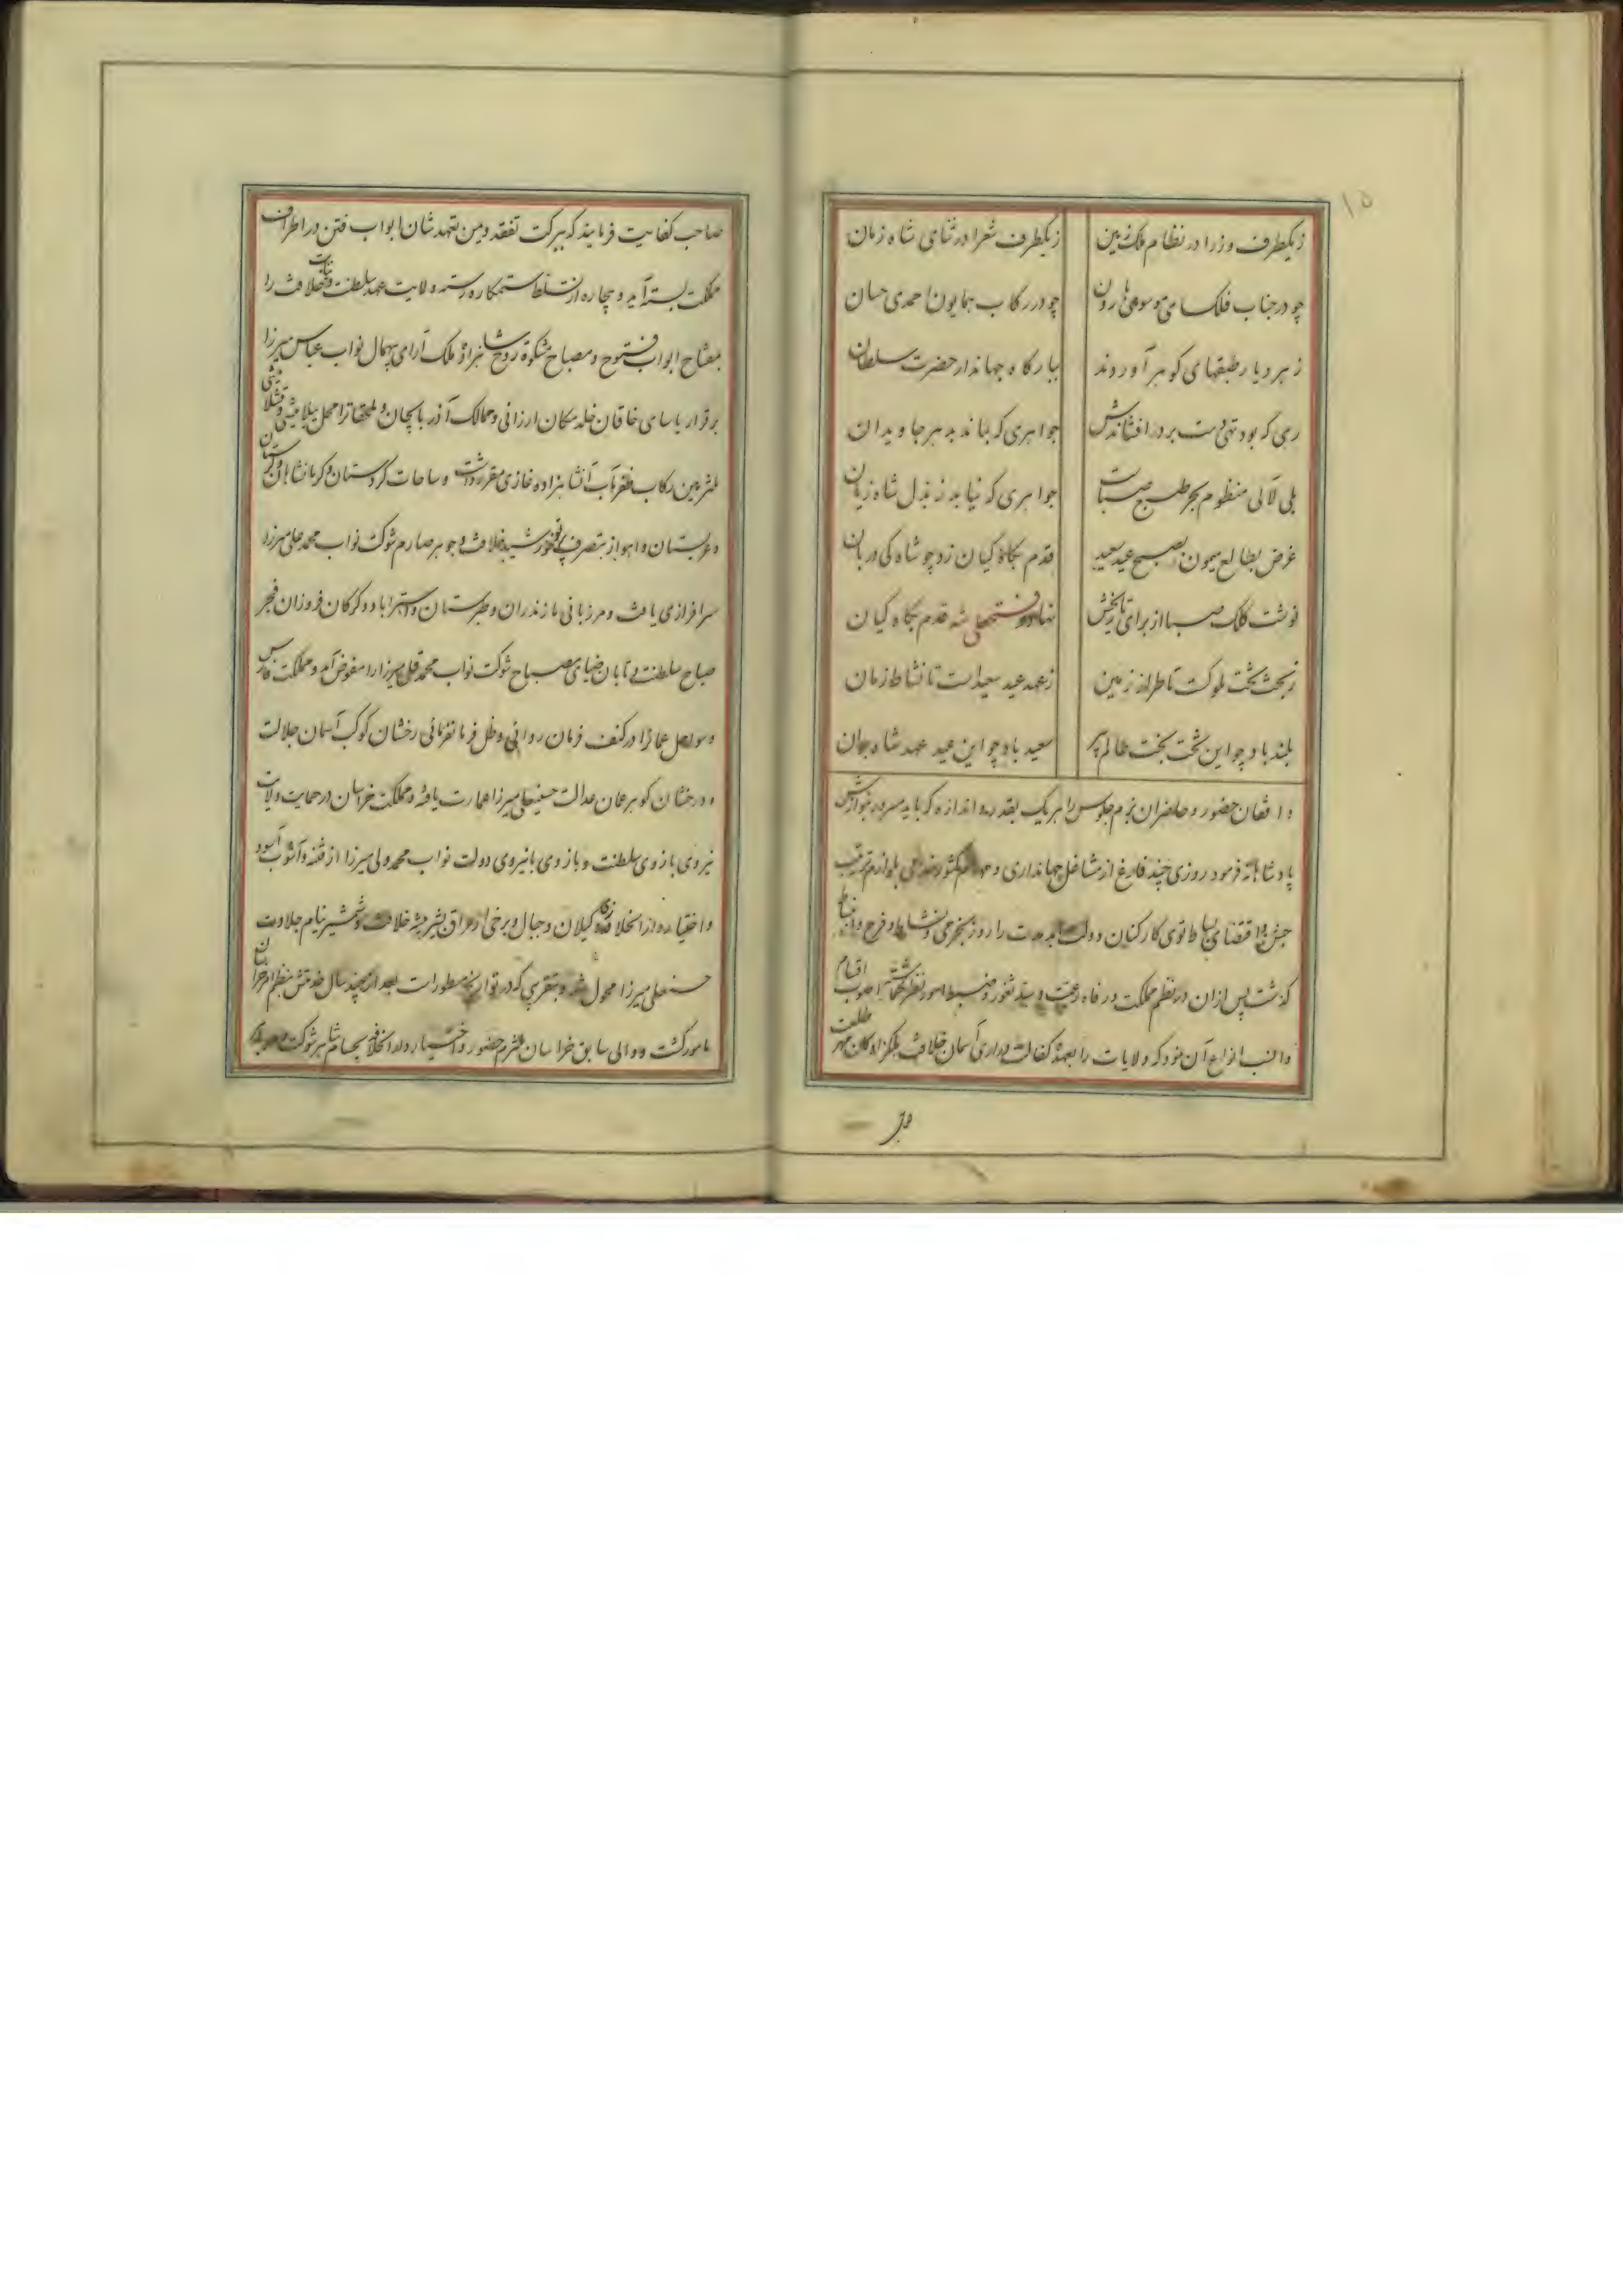 ۱۵
زیکطرف وزرا در نظام ملک زمین زیکطرف شعرا در ثنای شاه زمان
چو در جناب فلک سای موسوی هارون چو در رکاب همایون احمدی حسان
ز هر دیار طبقهای گوهر آوردند ببارگاه جهاندار حضرت سلطان
رهی که بود تهی دست بر در افشاندش جواهری که بماند بدهر جاویدان
بلی لآلی منظوم بحر طبع صباست جواهری که نیاید ز بذل شاه زیان
غرض بطالع میمون بصبح عید سعید قدم بگاه کیان زد چو شاه کی دربان
نوشت کلک صبا از برای تاریخش نهاد فتحعلی شه قدم بگاه کیان
ز تخت بخت ملوکست تا طراز زمین ز عهد عید سعید است تا نشاط زمان
بلند باد چو این تخت بخت عالم پیر سعید باد چو این عید عهد شاه جوان
واقفان حضور و حاضران بزم جلوس را هر یک بقدر و اندازه که باید سرور بنوازش
پادشاهانه فرمود روزی چند فارغ از مشاغل جهانداری و مهام کشور بلوازم ترتیب
جشن و اقتضای بساط توی کارکنان دولت ابدمدت را روز بخرمی و نشاط و فرح و انبساط
گذشت پس از آن در نظم مملکت و رفاه رعیت و سد ثغور و ضبط امور نظر گماشته اصوب اقسام
و انسب انواع آن نمود که ولایات را بعهده کفالت دراری آسمان خلافت ملکزادکان مهر طلعت
صاحب کفایت فرمایند که ببرکت تفقد و یمن تعهد شان ابواب فتن در اطراف
مملکت بسته آید و بیچاره از تسلط ستمکاره رسته ولایت عهد سلطنت و نیابت خلافت را
مفتاح ابواب فتوح و مصباح مشکوة روح شاهزاده ملک آرای بیهمال نواب عباس میرزا
برقرار یاسای خاقان خلد مکان ارزانی و ممالک آذربایجان و ملحقاترا محل ییلامیشی و قشلامیشی
ملتزمین رکاب ظفر مآب آنشاهزاده غازی مقرر داشت و ساحات کردستان و کرمانشاهان و لرستان
و عربستان و اهواز بتصرف پرتو خورشید خلافت و جوهر صارم شوکت نواب محمد علی میرزا
سرافرازی یافت و مرزبانی مازندران و طبرستان و استراباد و گرگان فروزان فجر
صباح سلطنت و تابان ضیای مصباح شوکت نواب محمد قلی میرزا را مفوض آمد و مملکت فارس
و سواحل عمانرا در کنف فرمان روائی و ظل فرمانفرمائی رخشان کوکب آسمان جلالت
و درخشان گوهر عمان عدالت حسینعلی میرزا عمارت یافته و مملکت خراسان در حمایت ولایت
نیروی بازوی سلطنت و بازوی بانیروی دولت نواب محمد ولی میرزا از فتنه و آشوب آسود
و اختیار دارالخلافه و گیلان و جبال و برخی از عراق بشیر بیشه خلافت و شمشیر نیام جلادت
حسنعلی میرزا محول شد و بتقریبی که در تواریخ مسطور است بعد از چند سال خدمتش بنظم خراسان
مامور گشت و والی سابق خراسان ملتزم حضور و اختیار دارالخلافه بحسام شاهر شوکت